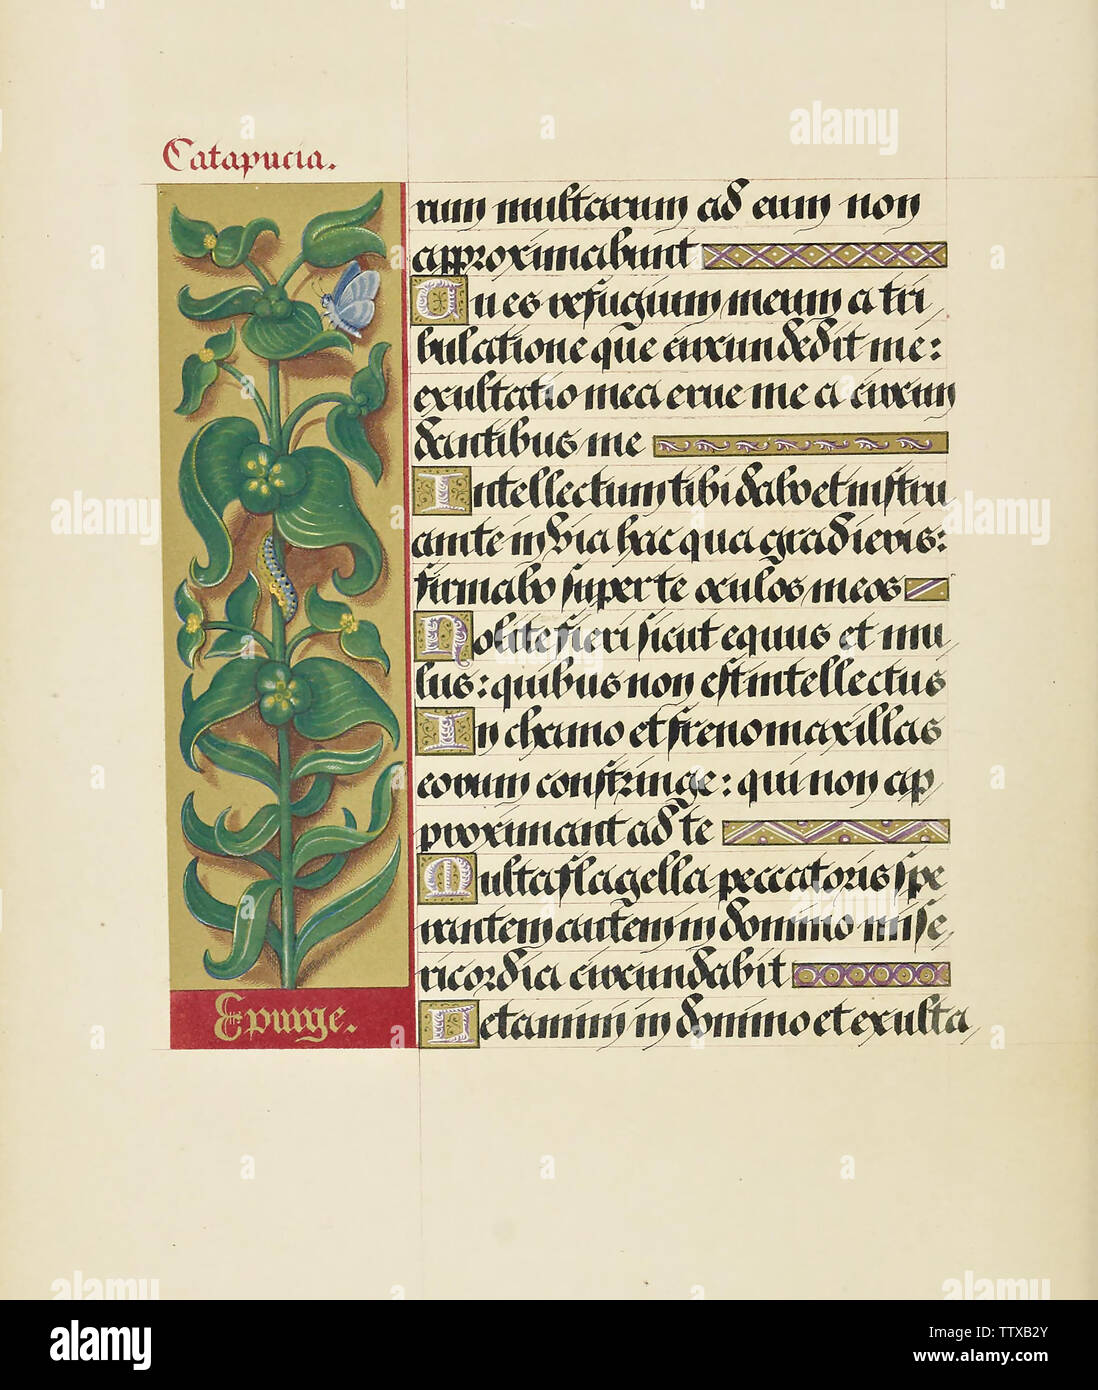 Catapucia.
rum multarum ad eum non
approximabunt
Tu es refugium meum a tri
bulatione que circundedit me:
exultatio mea erue me a circun
dantibus me
Intellectum tibi dabo et instru
am te in via hac qua gradieris:
firmabo super te oculos meos
Nolite fieri sicut equus et mu
lus: quibus non est intellectus
In chamo et freno maxillas
eorum constringe: qui non ap
proximant ad te
Multa flagella peccatoris spe
rantem autem in domino mise
ricordia circundabit
Letamini in domino et exulta
Epurge.
alamy
Image ID: TTXB2Y
www.alamy.com